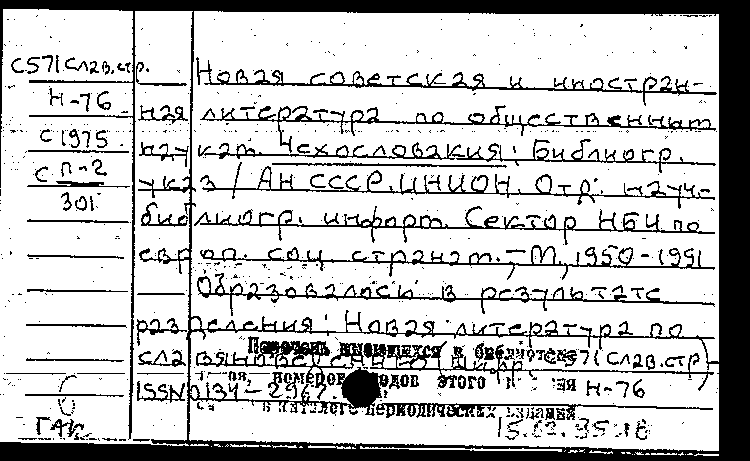 С571 Слав.стр.
Н-76
С 1975
С П-2
301
Новая советская и иностран-
ная литература по общественным
наукам. Чехословакия: Библиогр.
указ / АН СССР. ИНИОН. Отд. науч.-
библиогр. информ. Сектор НБИ по
европ. соц. странам. - М., 1950-1991
Образовалось в результате
разделения: Новая литература по
славяновед (С571 Слав.стр.)
Н-76
ISSN 0134-
номеров этого
в каталоге периодических издания
15.02.95